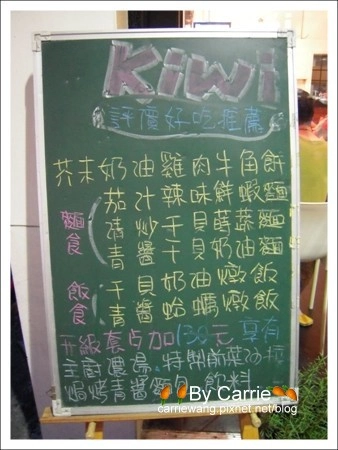 Kiwi
評價好吃推薦
芥末奶油雞肉牛角餅
茄汁辣味鮮蝦麵
清炒干貝時蔬麵
青醬干貝奶油麵
麵食
干貝奶油燉飯
青醬蛤蠣燉飯
飯食
升級套占加130元享有
主廚濃湯、特製前菜沙拉
焗烤青醬麵包 飲料
By Carrie
carriewang.pixnet.net/blog